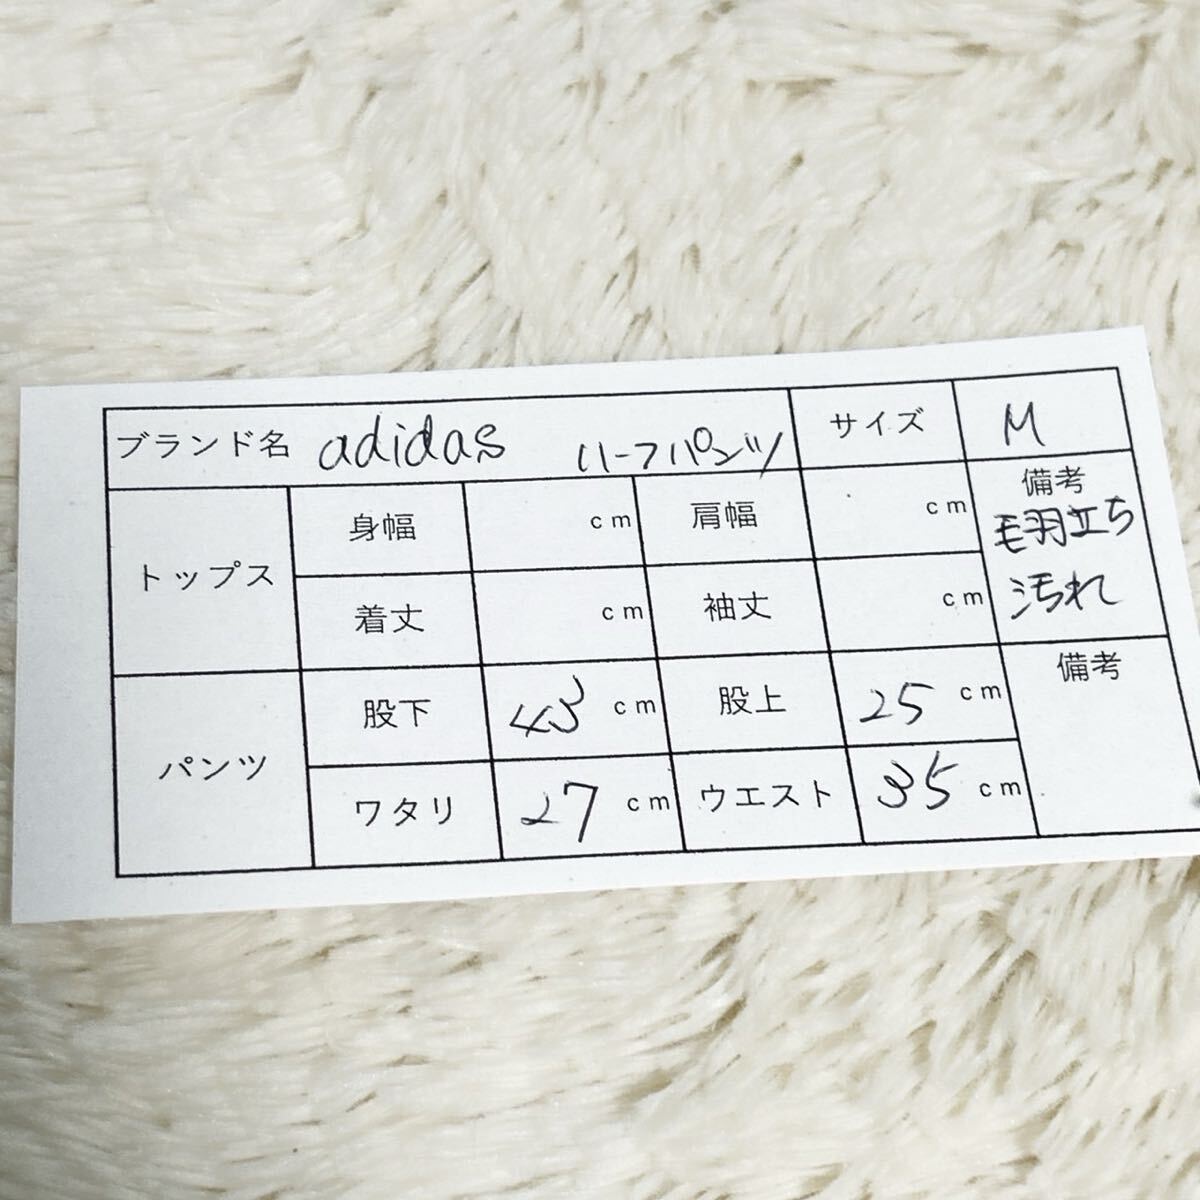 ブランド名 adidas ハーフパンツ サイズ M
トップス 身幅 cm 肩幅 cm 備考
毛羽立ち
着丈 cm 袖丈 cm 汚れ
パンツ 股下 43 cm 股上 25 cm 備考
ワタリ 27 cm ウエスト 35 cm